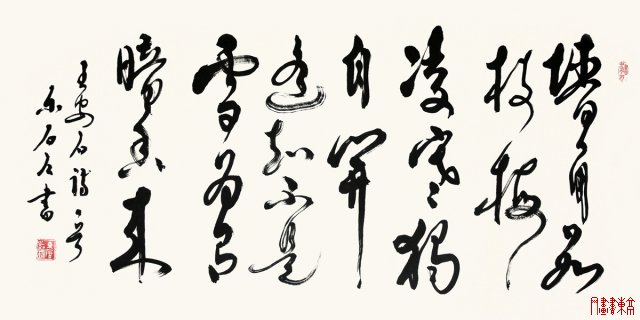 墙角数
枝梅
凌寒独
自開
遥知不是
雪为有
暗香来
王安石诗
石 书